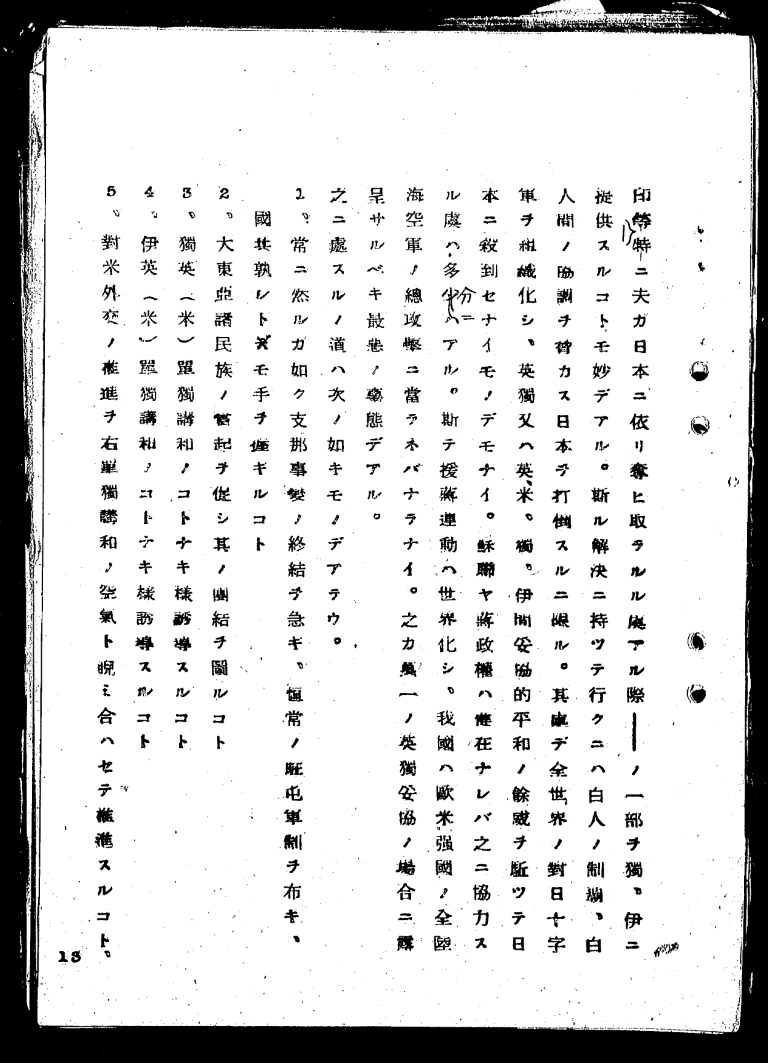 印等特ニ夫カ日本ニ依リ奪ヒ取ラルル虞アル際――ノ一部ヲ獨。伊ニ
提供スルコトモ妙デアル。斯ル解決ニ持ツテ行クニハ白人ノ制覇、白
人間ノ協調ヲ脅カス日本ヲ打倒スルニ限ル。其處デ全世界ノ對日十字
軍ヲ組織化シ、英獨又ハ英、米。獨。伊間妥協的平和ノ餘威ヲ驅ツテ日
本ニ殺到セナイモノデモナイ。蘇聯ヤ蔣政權ハ健在ナレバ之ニ協力ス
ル虞ハ多分ニアル。斯テ援蔣運動ハ世界化シ。我國ハ歐米强國ノ全陸
海空軍ノ總攻擊ニ當ラネバナラナイ。之カ萬一ノ英獨妥協ノ場合ニ露
呈サルベキ最悪ノ事態デアル。
之ニ處スルノ道ハ次ノ如キモノデアラウ。
1。常ニ然ルガ如ク支那事變ノ終結ヲ急ギ。恒常ノ駐屯軍制ヲ布キ、
國共孰レトモ手ヲ握ギルコト
2。大東亞諸民族ノ奮起ヲ促シ其ノ團結ヲ圖ルコト
3。獨英(米)單獨講和ノコトナキ樣誘導スルコト
4。伊英(米)單獨講和ノコトナキ樣誘導スルコト
5。對米外交ノ推進ヲ右單獨講和ノ空氣ト睨ミ合ハセテ推進スルコト。
13